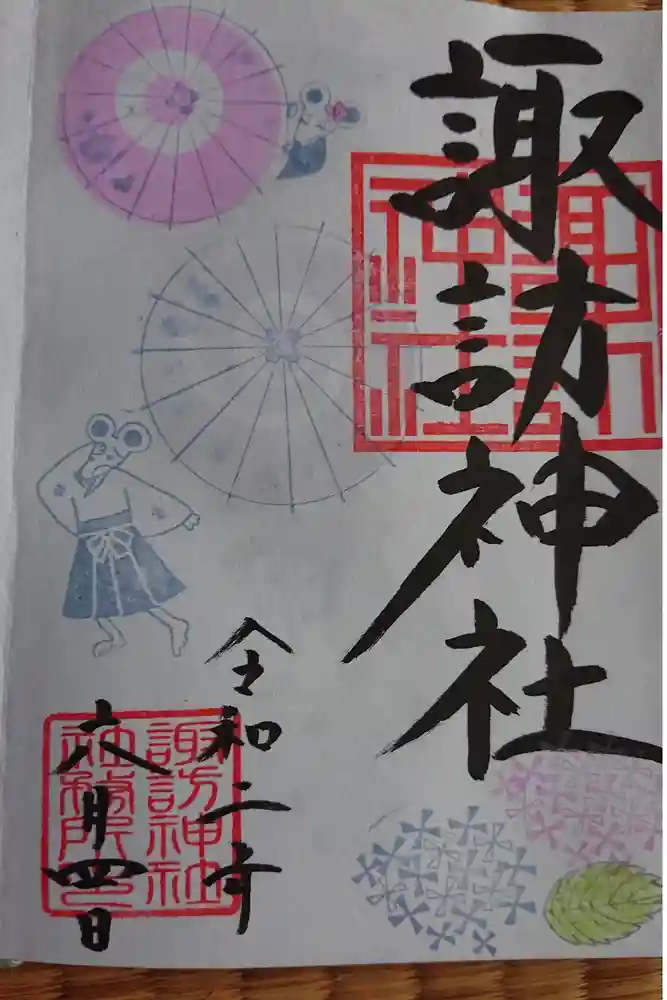 諏訪神社
諏訪神社
令和二年
六月四日
諏訪神社
社務所